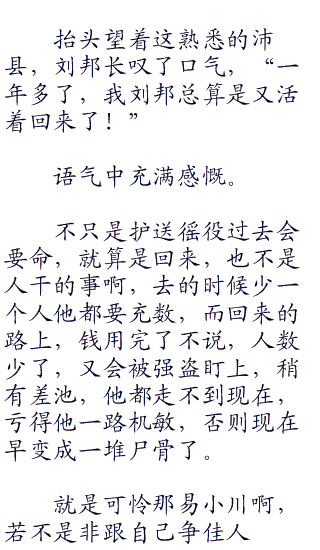 抬头望着这熟悉的沛
县，刘邦长叹了口气，“一
年多了，我刘邦总算是又活
着回来了！”
语气中充满感慨。
不只是护送徭役过去会
要命，就算是回来，也不是
人干的事啊，去的时候少一
个人他都要充数，而回来的
路上，钱用完了不说，人数
少了，又会被强盗盯上，稍
有差池，他都走不到现在，
亏得他一路机敏，否则现在
早变成一堆尸骨了。
就是可怜那易小川啊，
若不是非跟自己争佳人